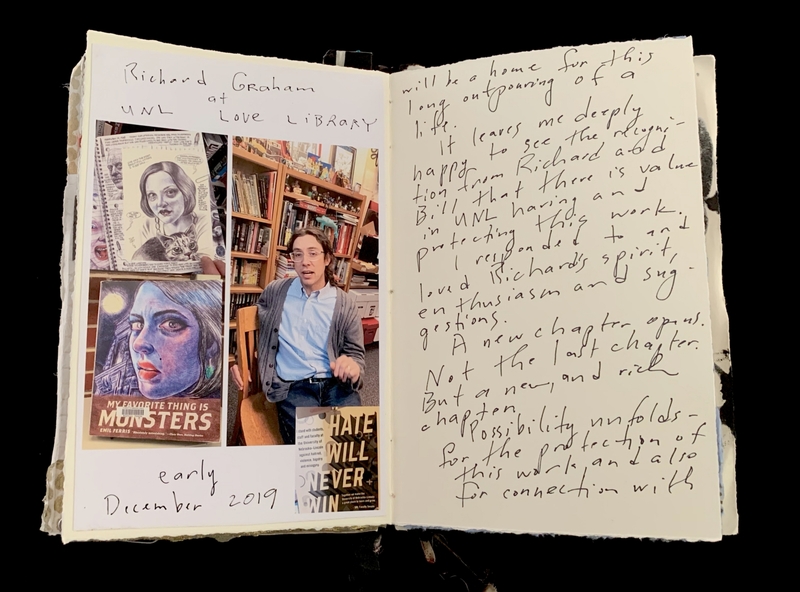 Richard Graham
at
UNL Love Library
MY FAVORITE THING IS
MONSTERS
EMIL FERRIS
HATE
WILL
NEVER
WIN
early
December 2019
will be a home for this
long outpouring of a
life.
It leaves me deeply
happy to see the recogni-
tion from Richard and
Bill that there is value
in UNL having and
protecting this work.
I responded to and
loved Richard's spirit,
enthusiasm and sug-
gestions.
A new chapter opens.
Not the last chapter.
But a new, and rich
chapter.
Possibility unfolds -
for the protection of
this work, and also
for connection with